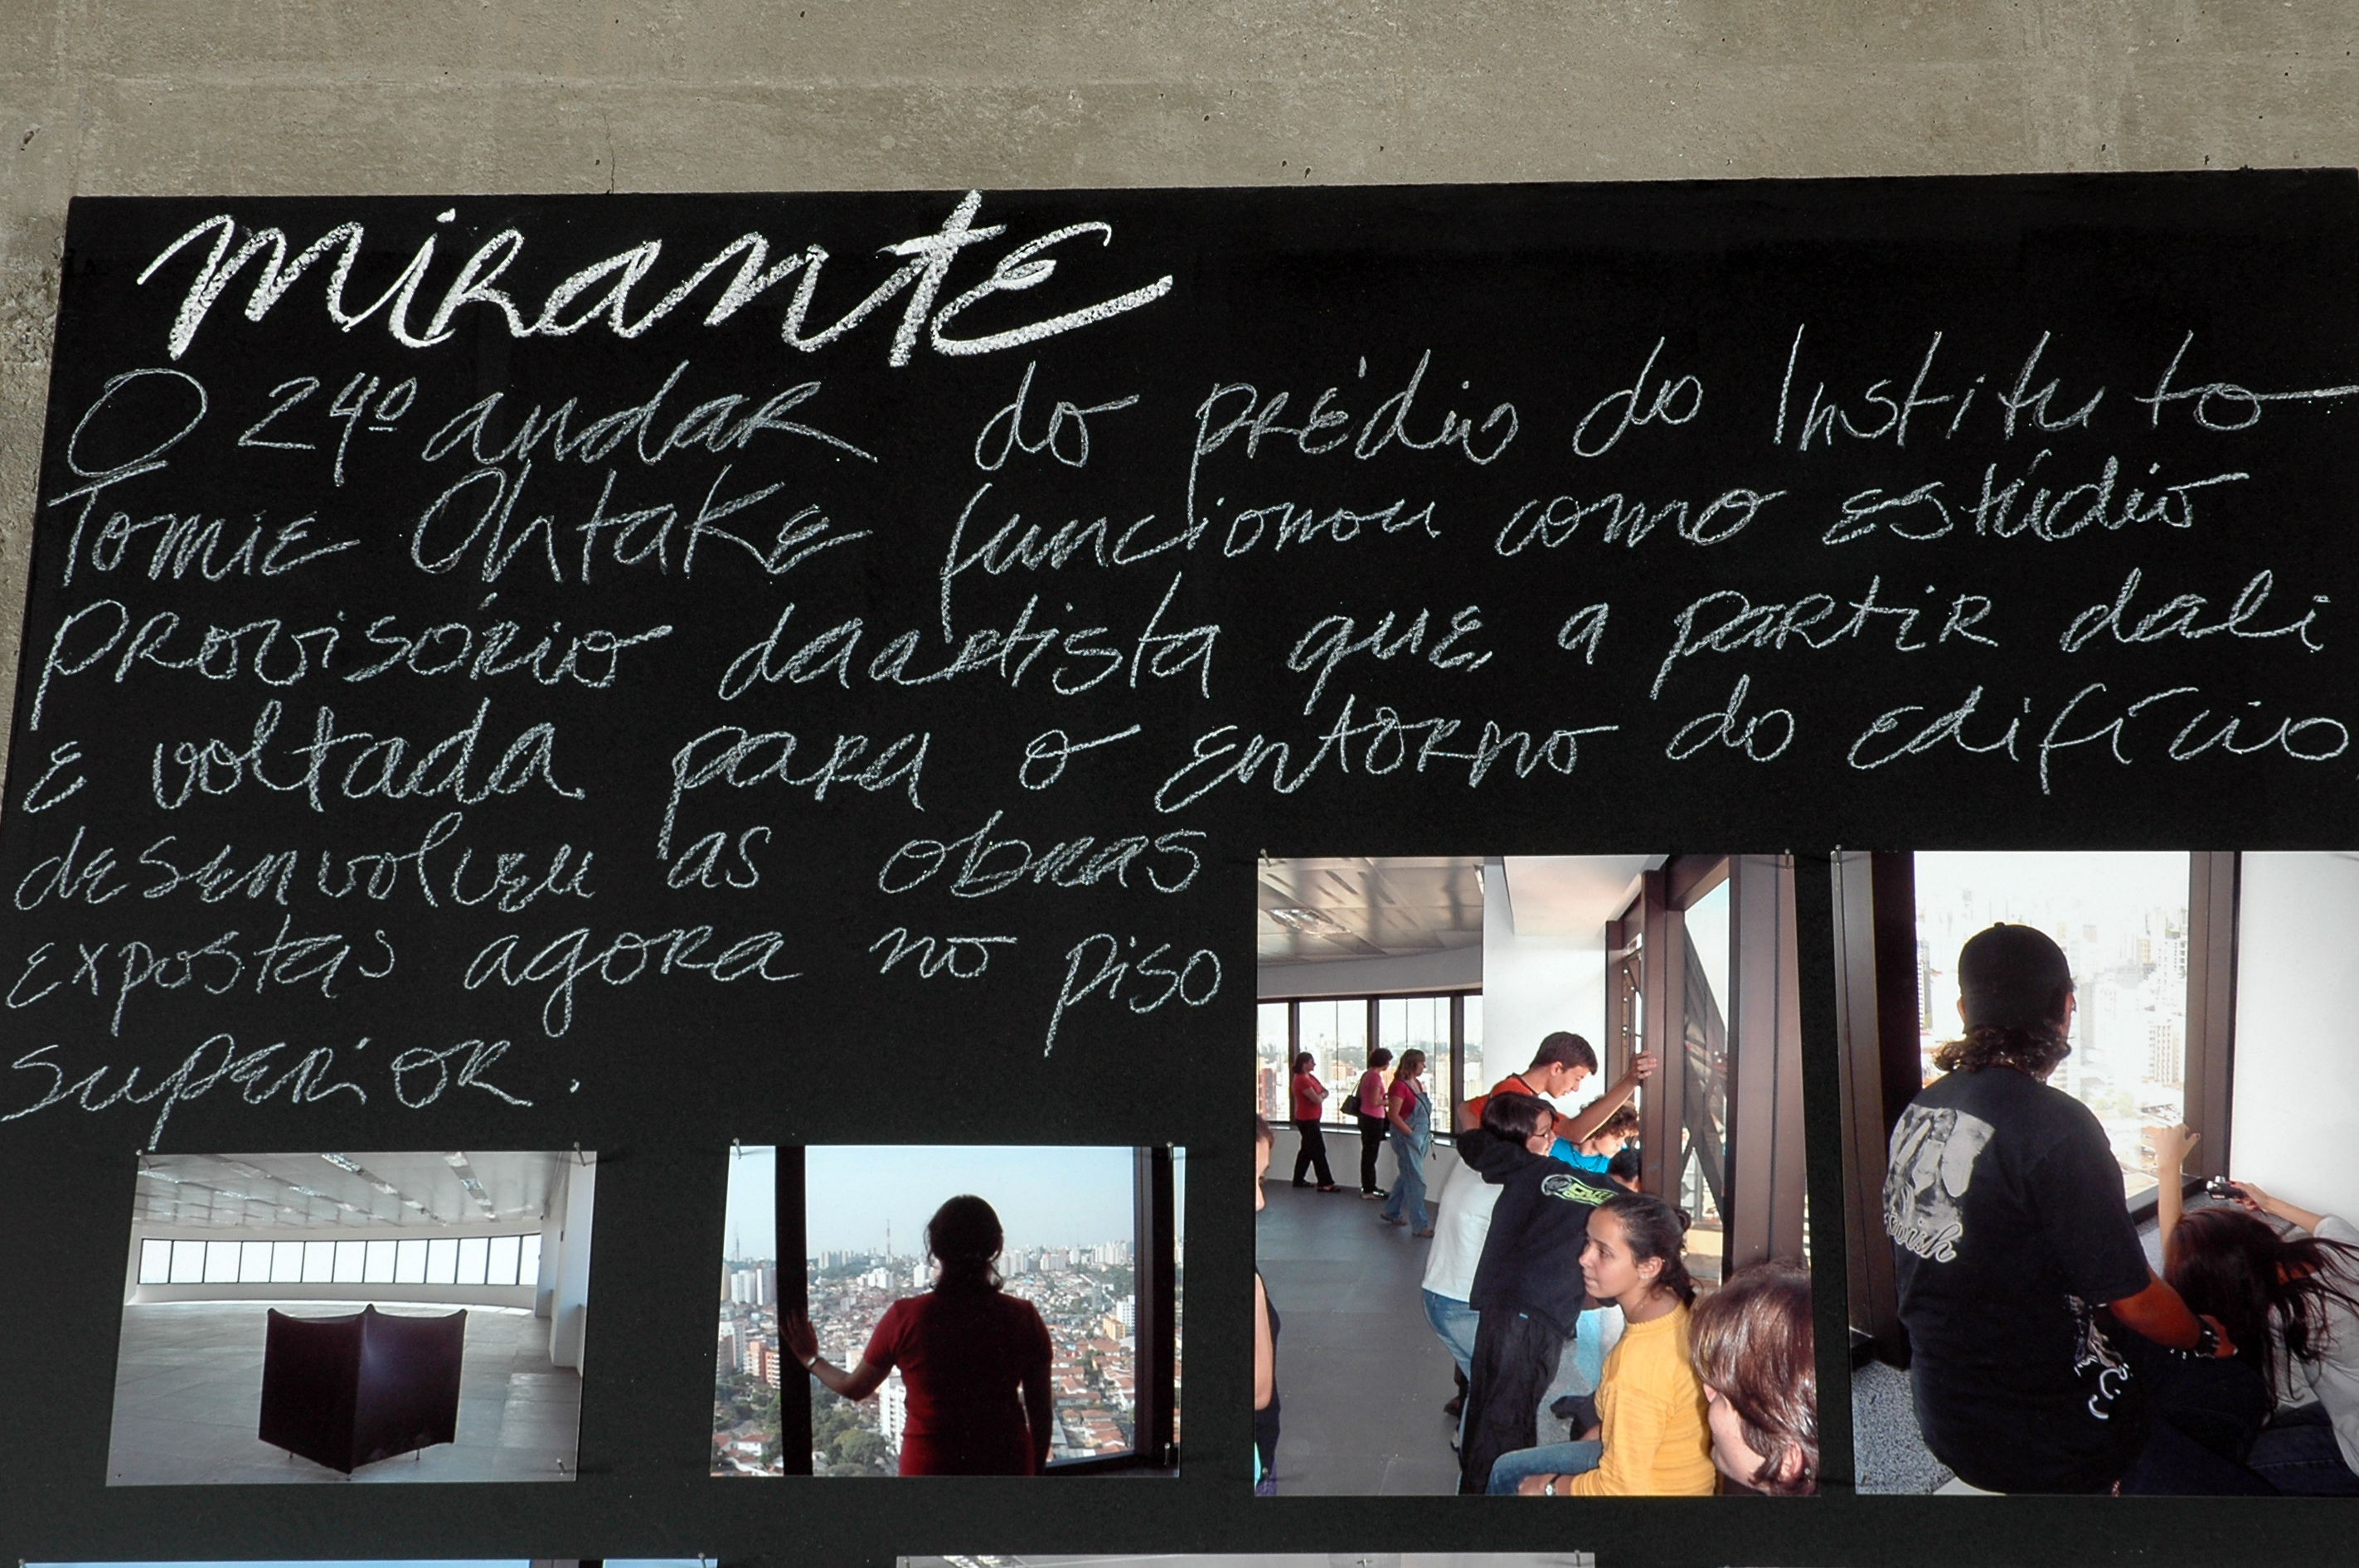 mirante
O 24º andar do prédio do Instituto
Tomie Ohtake funcionou como estúdio
provisório da artista que, a partir dali
e voltada para o entorno do edifício
desenvolveu as obras
expostas agora no piso
superior.